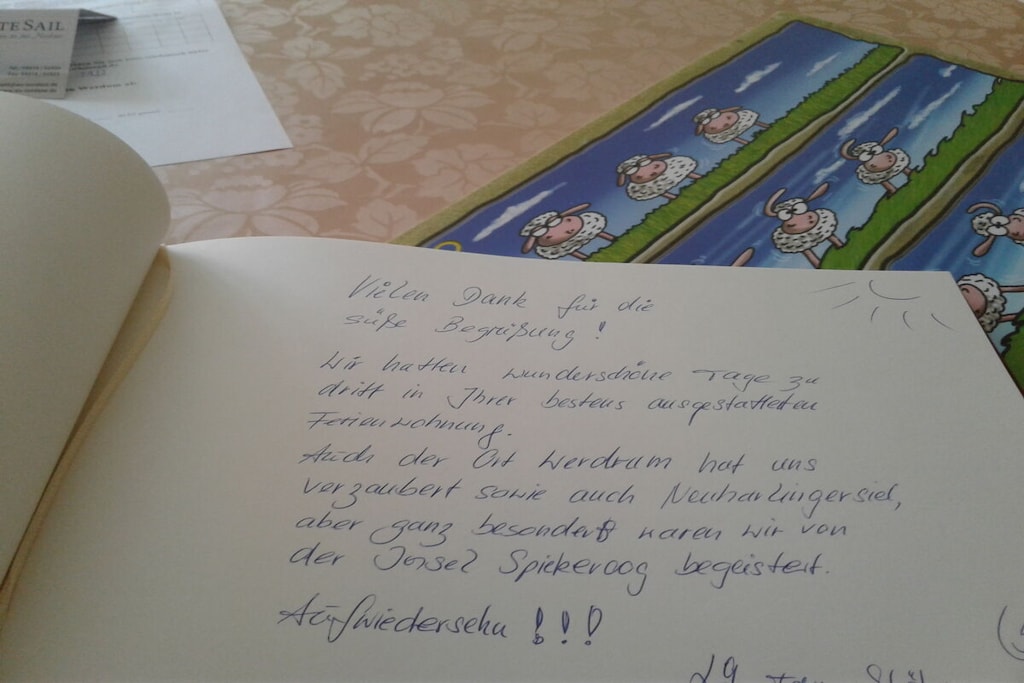 TE SAIL
Vielen Dank für die
süße Begrüßung!
Wir hatten wunderschöne Tage zu
dritt in Ihrer bestens ausgestatteten
Ferienwohnung.
Auch der Ort Werdrum hat uns
verzaubert sowie auch Neuharlingersiel,
aber ganz besonders waren wir von
der Insel Spiekeroog begeistert.
Aufwiedersehn !!!